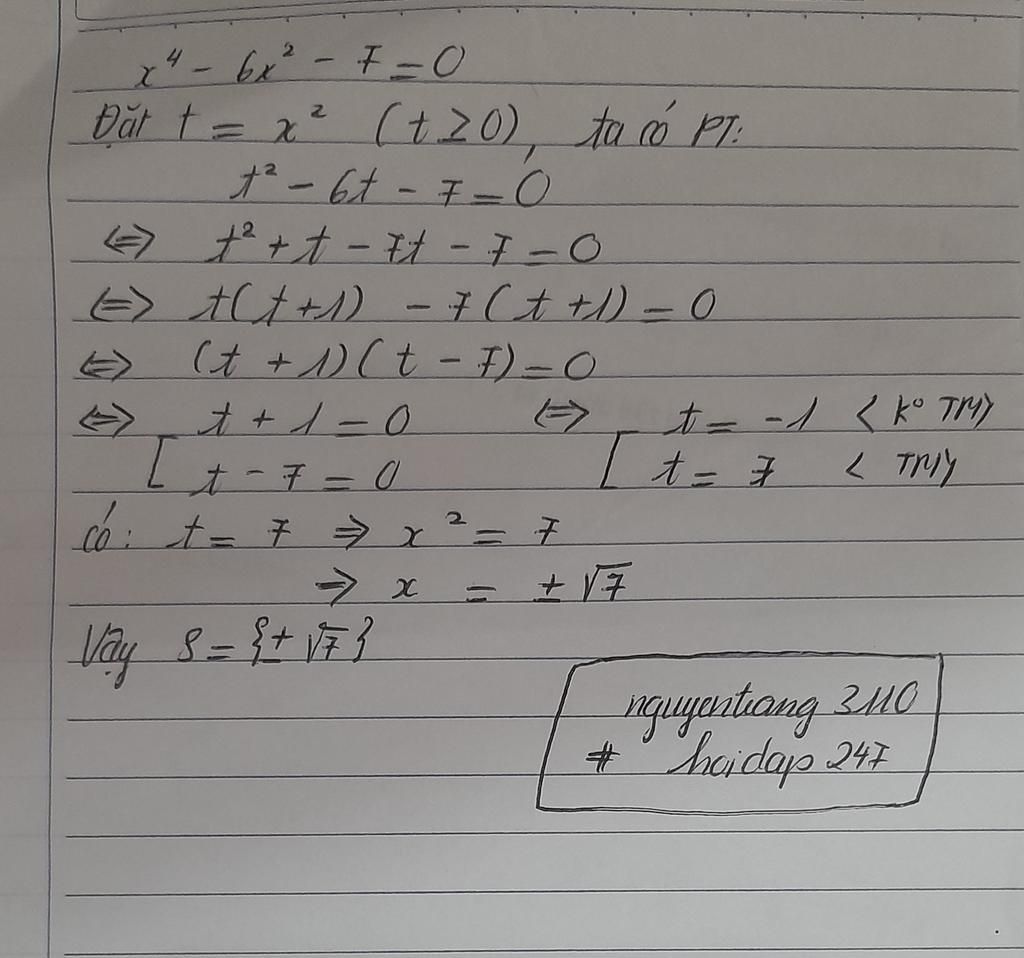 x⁴ - 6x² - 7 = 0
Đặt t = x² (t ≥ 0), ta có PT:
t² - 6t - 7 = 0
⇔ t² + t - 7t - 7 = 0
⇔ t(t+1) - 7(t+1) = 0
⇔ (t + 1)(t - 7) = 0
⇔ [ t + 1 = 0 ⇔ [ t = -1 < K° TM>
t - 7 = 0 t = 7 < TM>
có: t = 7 ⇒ x² = 7
⇒ x = ± √7
Vậy S = {± √7}
nguyentrang 3110
# hoidap 247